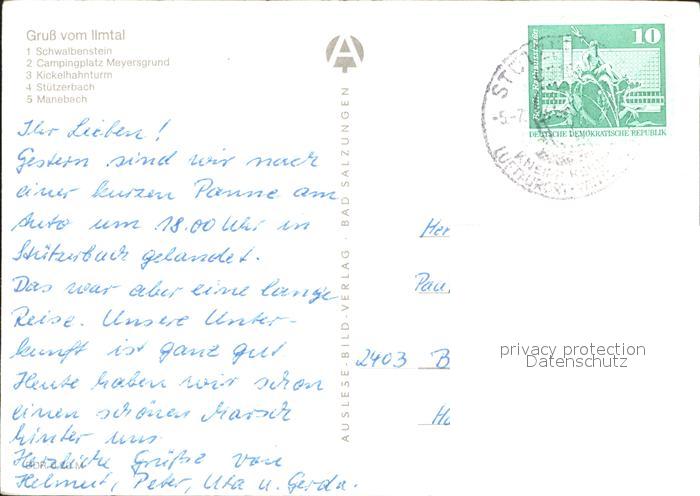 Gruß vom Ilmtal
1 Schwalbenstein
2 Campingplatz Meyersgrund
3 Kickelhahnturm
4 Stützerbach
5 Manebach
Ihr Lieben!
Gestern sind wir nach
einer kurzen Panne am
Auto um 18.00 Uhr in
Stützerbach gelandet.
Das war aber eine lange
Reise. Unsere Unter-
kunft ist ganz gut
Heute haben wir schon
einen schönen Marsch
hinter uns
Herzliche Grüße von
Helmut, Peter, Uta u. Gerda.
AUSLESE-BILD-VERLAG · BAD SALZUNGEN
10
DEUTSCHE DEMOKRATISCHE REPUBLIK
-5.-7.
Her
Pau
2403 B
Ho
privacy protection
Datenschutz